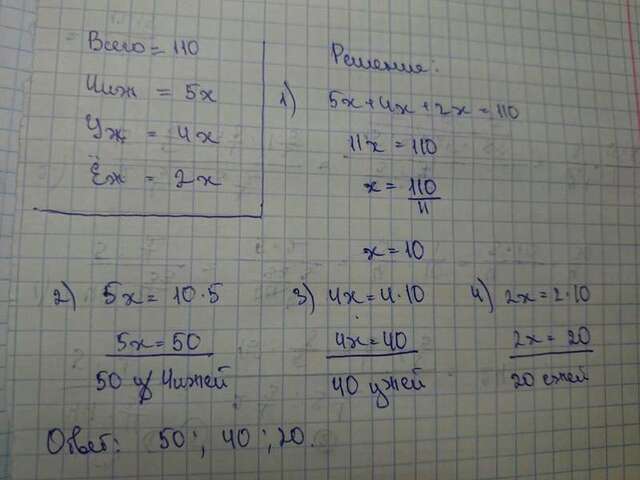 Всего = 110
Чиж = 5x
Уж = 4x
Ёж = 2x
Решения:
1) 5x+4x+2x=110
11x = 110
x = 110/11
x = 10
2) 5x = 10·5
5x = 50
50 чижей
3) 4x = 4·10
4x = 40
40 ужей
4) 2x = 2·10
2x = 20
20 ежей
Ответ: 50; 40; 20.